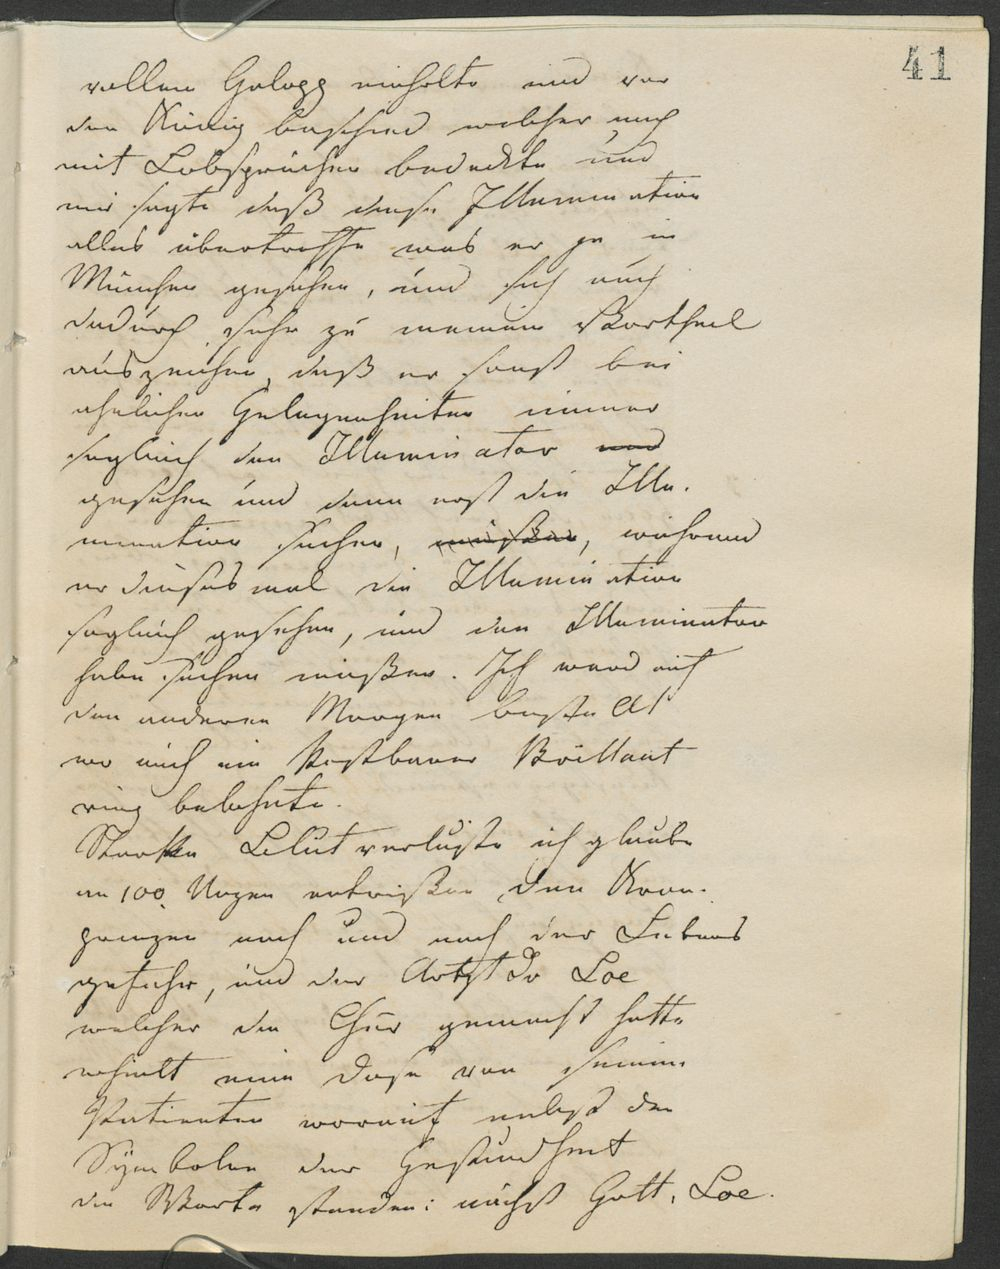 41
vollen Galopp einholte und vor
den König beschied welcher mich
mit Lobsprüchen bedeckte und
mir sagte daß diese Illumination
alles übertreffe was er je in
München gesehen, und sich auch
dadurch sehr zu meinem Vortheil
auszeichne, daß er sonst bei
ähnlichen Gelegenheiten immer
sogleich den Illuminator und
gesehen und dann erst die Illu-
mination suchen, müßen, während
er dieses mal die Illumination
sogleich gesehen, und den Illuminator
habe suchen müßen. Ich ward auf
den anderen Morgen bestellt
wo mich ein kostbarer Brillant
ring belohnte.
Starke Blut verluste ich glaube
an 100. Unzen entrißen den Kron-
prinzen nach und nach der Lebens
gefahr, und der Artzt Dr Loe
welcher die Chur gemacht hatte
erhielt eine Dose von seinem
Patienten worauf nebst den
Symbolen der Gesundheit
die Worte standen: nächst Gott, Loe.